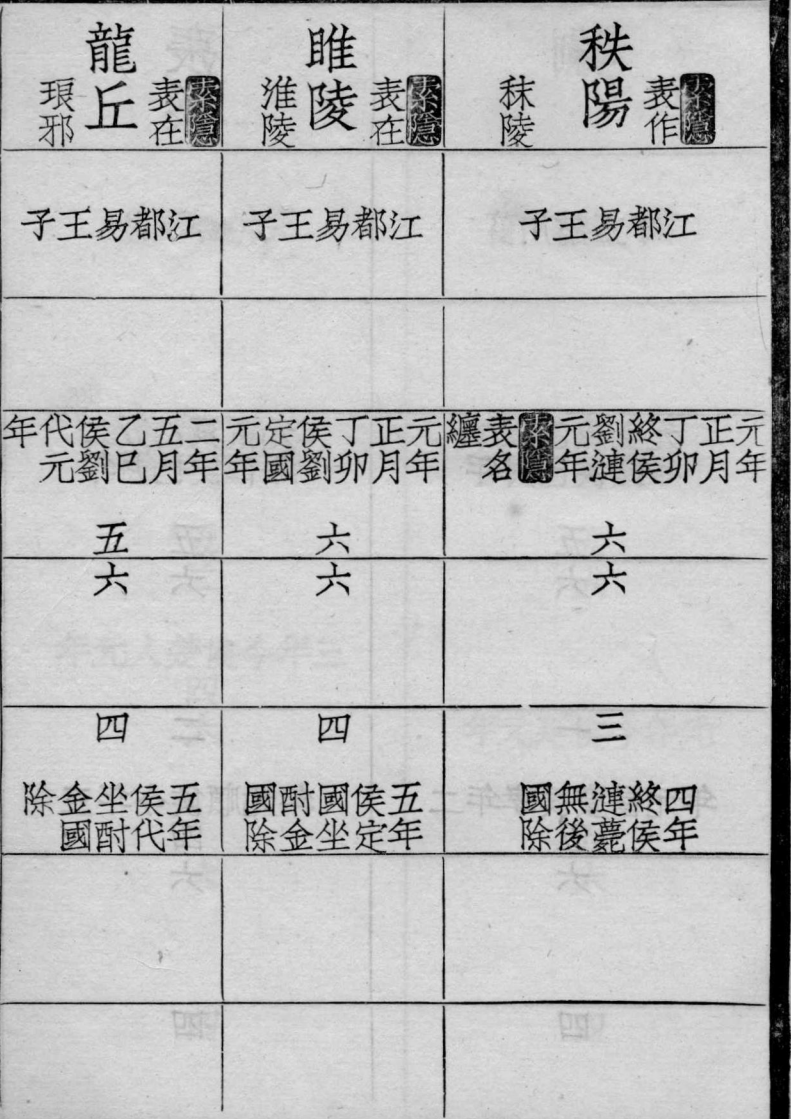 秩陽索隱表作秣陵
江都易王子
元年正月丁卯終侯劉漣元年索隱表名纏
六
六
三
四年終侯漣薨無後國除
睢陵索隱表在淮陵
江都易王子
元年正月丁卯侯劉定國元年
六
六
四
五年侯定國坐酎金國除
龍丘索隱表在琅邪
江都易王子
二年五月乙巳侯劉代元年
五
六
四
五年侯代坐酎金國除